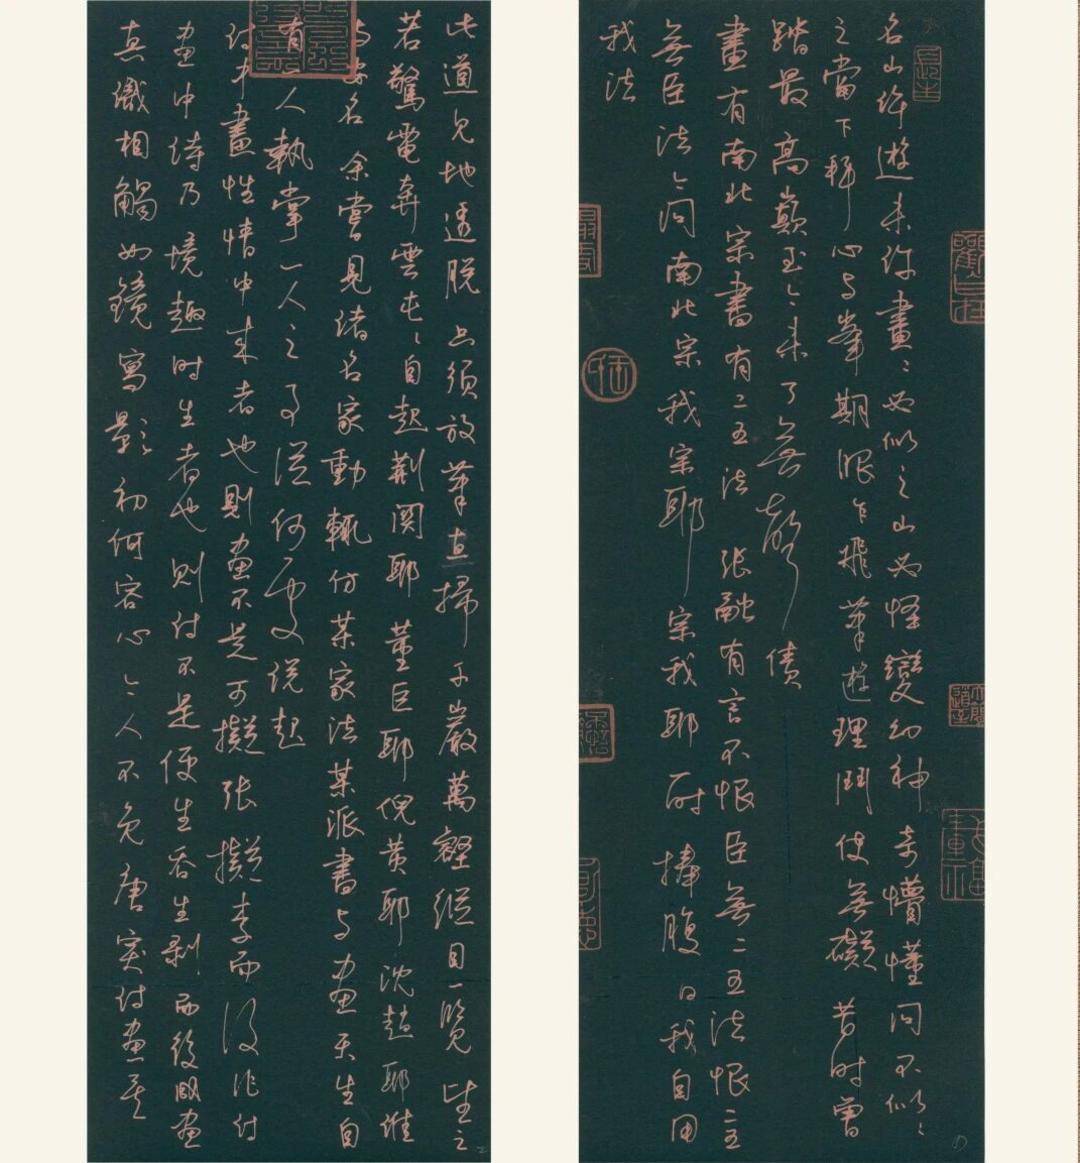 名山许遊未许畫ミ必似之山必怪變幻神奇懵懂间不似ミ
之當下拜心与峯期眼乍飛筆遊理鬥使無礙昔时曾
踏最高巔至今未了無聲债
畫有南北宗書有二王法 張融有言不恨臣無二王法恨二王
無臣法今问南北宗我宗耶宗我耶一时捧腹曰我自用
我法
此道見地透脱只须放筆直掃千巖萬壑縱目一覽望之
若驚電奔雲屯ミ自起荆関耶董巨耶倪黄耶沈趙耶谁
与安名余嘗見诸名家動輒仿某家法某派書与画天生自
有一人執掌一人之事從何處说起
诗中畫性情中来者也则画不是可擬張擬李而後作诗
画中诗乃境趣时生者也则诗不是便生吞生剥而後成画
真識相觸如鏡寫影初何容心今人不免唐突诗画矣